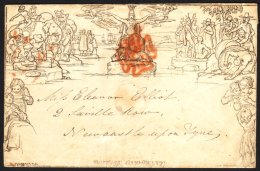 Miss Eleanor Elliot
2 Saville Row,
Newcastle upon Tyne,